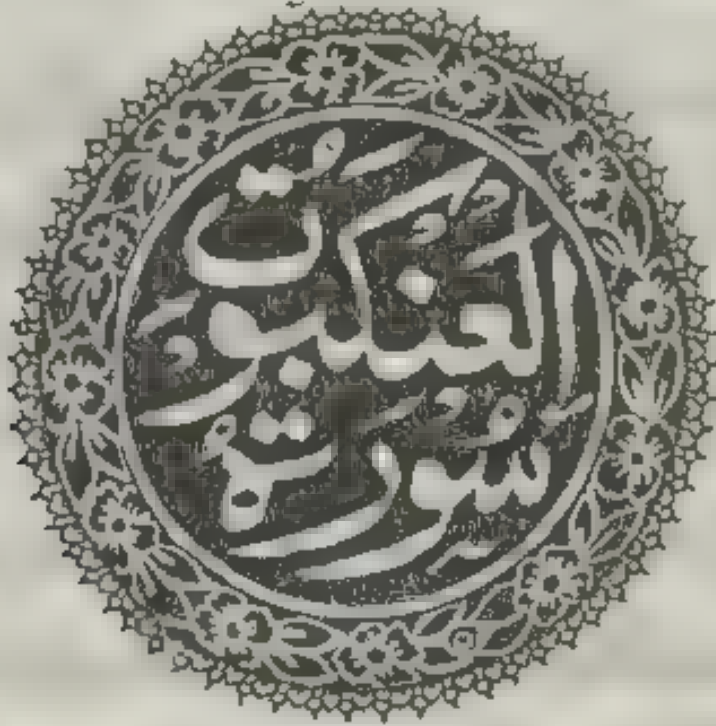 سُورَةُ
العَنْكَبُوتِ